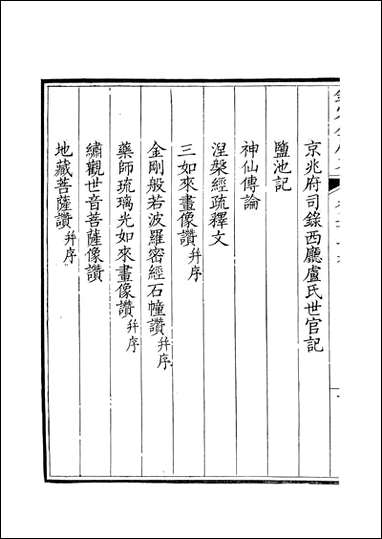 京兆府司錄西廳盧氏世官記
鹽池記
神仙傳論
涅槃經疏釋文
三如來畫像讚并序
金剛般若波羅密經石幢讚并序
藥師琉璃光如來畫像讚并序
繡觀世音菩薩像讚
地藏菩薩讚并序